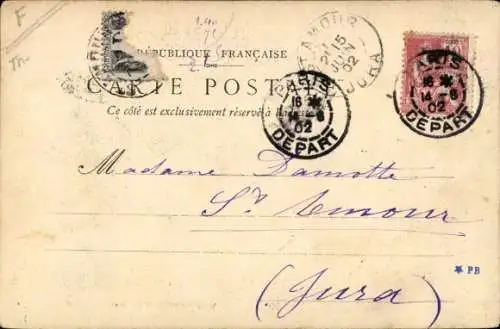 F
RÉPUBLIQUE FRANÇAISE
CARTE POSTALE
Ce côté est exclusivement réservé à l'adresse
AMOUR
15
JUIN
02
JURA
PARIS
16 *
14 - 6
02
DÉPART
PARIS
16 *
14 - 6
02
DÉPART
Madame Damotte
St Amour
(Jura)
* PB